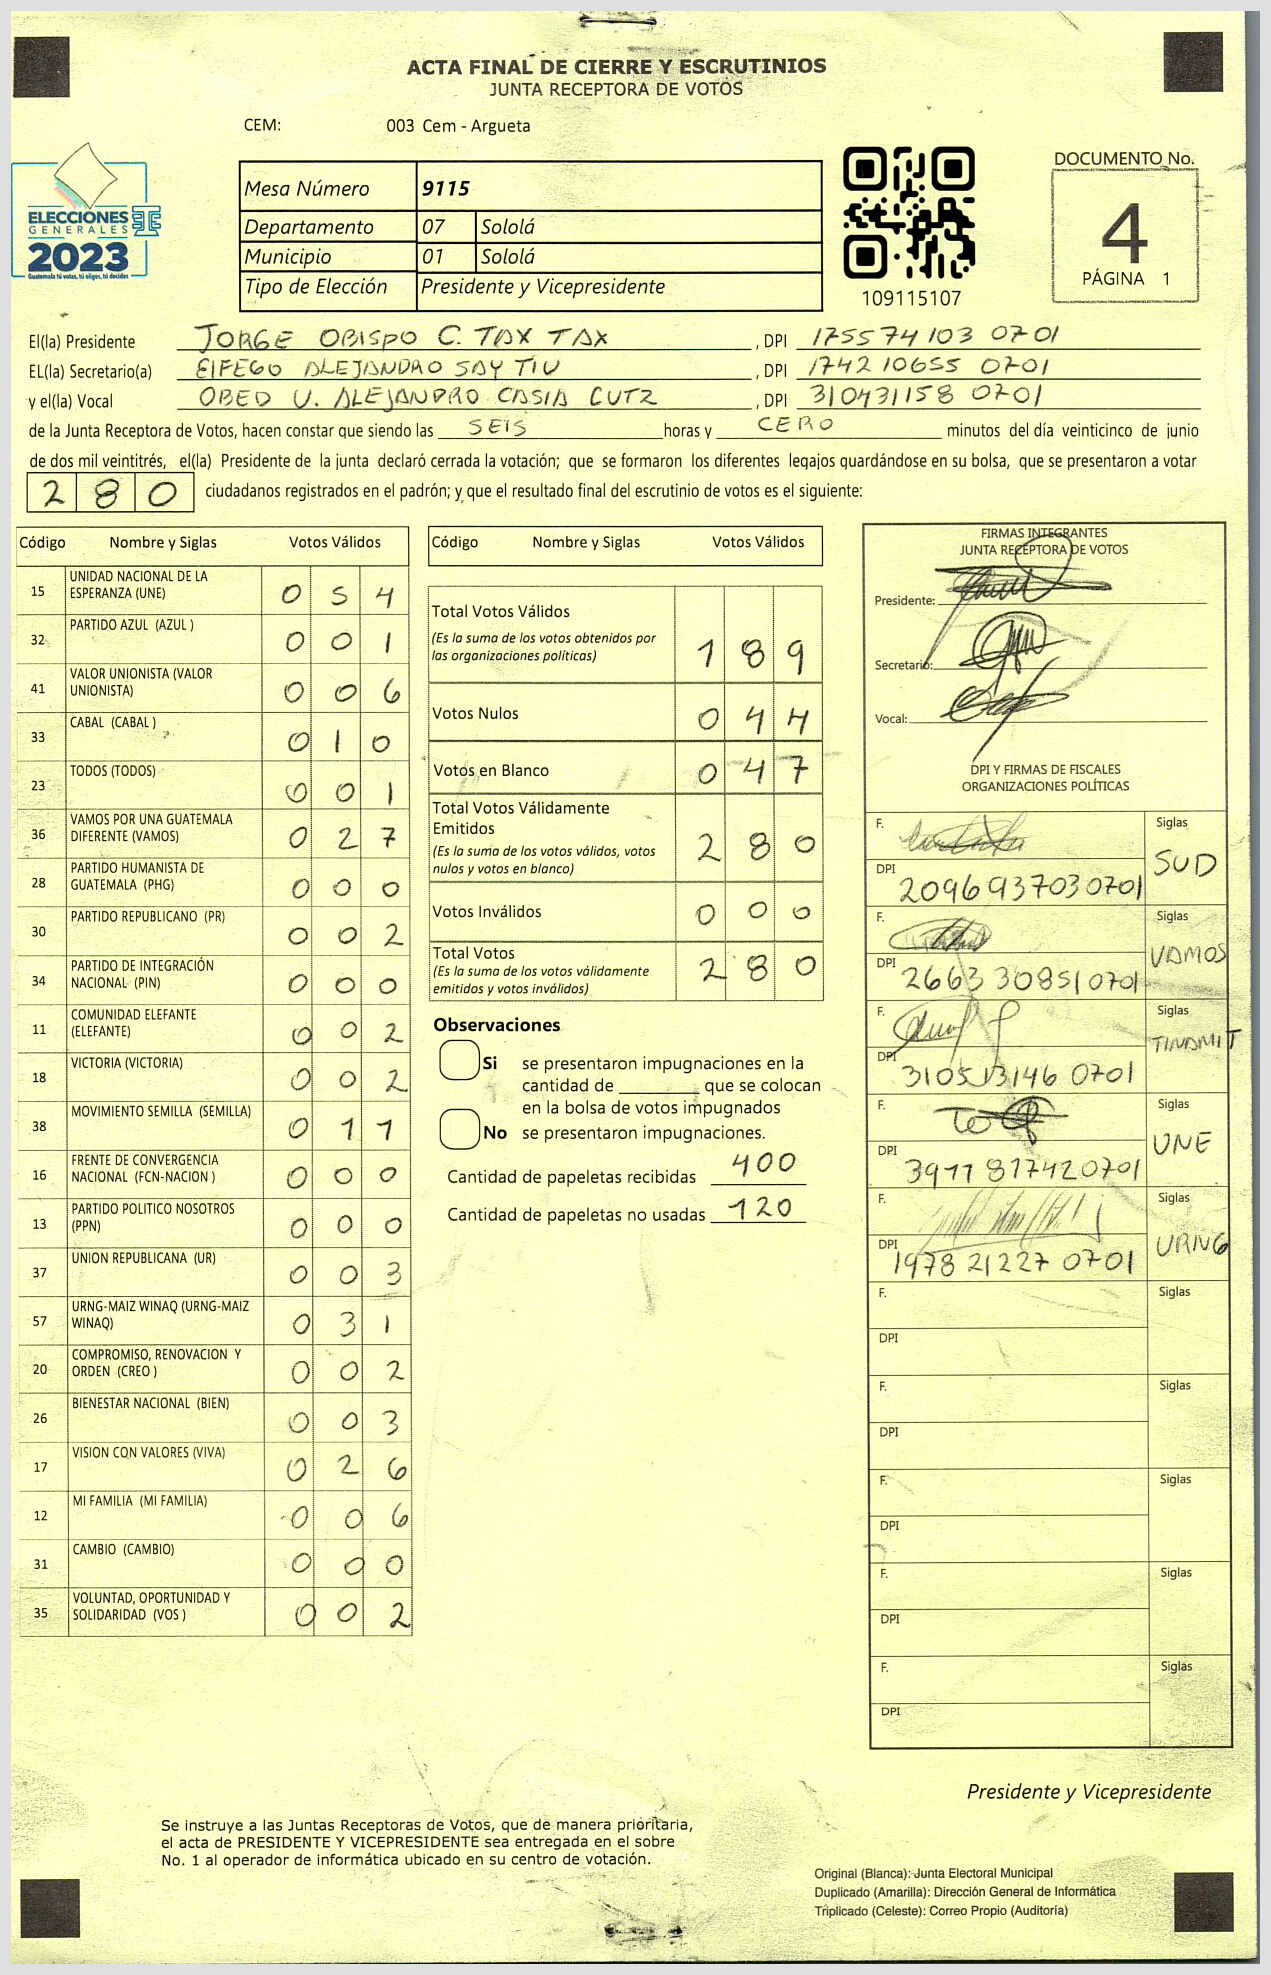 ACTA FINAL DE CIERRE Y ESCRUTINIOS
JUNTA RECEPTORA DE VOTOS
CEM: 003 Cem - Argueta
ELECCIONES
GENERALES
2023
Guatemala tú votas, tú eliges, tú decides
Mesa Número 9115
Departamento 07 Sololá
Municipio 01 Sololá
Tipo de Elección Presidente y Vicepresidente
109115107
DOCUMENTO No.
4
PÁGINA 1
El(la) Presidente JORGE OBISPO C. TAX TAX, DPI 175574103 0701
EL(la) Secretario(a) ElFEGO ALEJANDRO SAY TIU, DPI 174210655 0701
y el(la) Vocal OBED U. ALEJANDRO CASIA CUTZ, DPI 310431158 0701
de la Junta Receptora de Votos, hacen constar que siendo las SEIS horas y CERO minutos del día veinticinco de junio
de dos mil veintitrés, el(la) Presidente de la junta declaró cerrada la votación; que se formaron los diferentes legajos guardándose en su bolsa, que se presentaron a votar
280 ciudadanos registrados en el padrón; y que el resultado final del escrutinio de votos es el siguiente:
Código Nombre y Siglas Votos Válidos
15 UNIDAD NACIONAL DE LA ESPERANZA (UNE) 054
32 PARTIDO AZUL (AZUL ) 001
41 VALOR UNIONISTA (VALOR UNIONISTA) 006
33 CABAL (CABAL ) 010
23 TODOS (TODOS) 001
36 VAMOS POR UNA GUATEMALA DIFERENTE (VAMOS) 027
28 PARTIDO HUMANISTA DE GUATEMALA (PHG) 000
30 PARTIDO REPUBLICANO (PR) 002
34 PARTIDO DE INTEGRACIÓN NACIONAL (PIN) 000
11 COMUNIDAD ELEFANTE (ELEFANTE) 002
18 VICTORIA (VICTORIA) 002
38 MOVIMIENTO SEMILLA (SEMILLA) 011
16 FRENTE DE CONVERGENCIA NACIONAL (FCN-NACION ) 000
13 PARTIDO POLITICO NOSOTROS (PPN) 000
37 UNION REPUBLICANA (UR) 003
57 URNG-MAIZ WINAQ (URNG-MAIZ WINAQ) 031
20 COMPROMISO, RENOVACION Y ORDEN (CREO ) 002
26 BIENESTAR NACIONAL (BIEN) 003
17 VISION CON VALORES (VIVA) 026
12 MI FAMILIA (MI FAMILIA) 006
31 CAMBIO (CAMBIO) 000
35 VOLUNTAD, OPORTUNIDAD Y SOLIDARIDAD (VOS ) 002
Código Nombre y Siglas Votos Válidos
Total Votos Válidos
(Es la suma de los votos obtenidos por
las organizaciones políticas) 189
Votos Nulos 044
Votos en Blanco 047
Total Votos Válidamente
Emitidos
(Es la suma de los votos válidos, votos
nulos y votos en blanco) 280
Votos Inválidos 000
Total Votos
(Es la suma de los votos válidamente
emitidos y votos inválidos) 280
Observaciones
Si se presentaron impugnaciones en la
cantidad de ________ que se colocan
en la bolsa de votos impugnados
No se presentaron impugnaciones.
Cantidad de papeletas recibidas 400
Cantidad de papeletas no usadas 120
FIRMAS INTEGRANTES
JUNTA RECEPTORA DE VOTOS
Presidente:
Secretario:
Vocal:
DPI Y FIRMAS DE FISCALES
ORGANIZACIONES POLÍTICAS
F. Siglas SUD
DPI 2096937030701
F. Siglas VAMOS
DPI 2663308510701
F. Siglas TINAMIT
DPI 310513146 0701
F. Siglas UNE
DPI 3911817420701
F. Siglas URNG
DPI 197821227 0701
F. Siglas
DPI
F. Siglas
DPI
F. Siglas
DPI
F. Siglas
DPI
F. Siglas
DPI
Presidente y Vicepresidente
Se instruye a las Juntas Receptoras de Votos, que de manera prioritaria,
el acta de PRESIDENTE Y VICEPRESIDENTE sea entregada en el sobre
No. 1 al operador de informática ubicado en su centro de votación.
Original (Blanca): Junta Electoral Municipal
Duplicado (Amarilla): Dirección General de Informática
Triplicado (Celeste): Correo Propio (Auditoría)